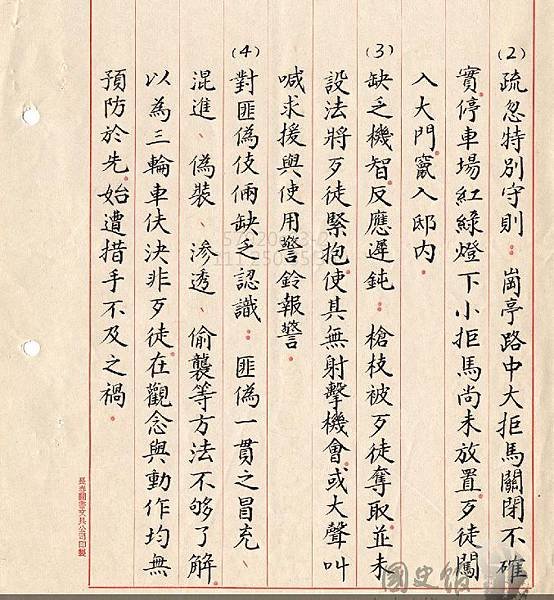 (2)疏忽特別守則：崗亭路中大拒馬關閉不確
實停車場紅綠燈下小拒馬尚未放置。歹徒闖
入大門竄入邸內。
(3)缺乏機智。反應遲鈍：槍枝被歹徒奪取。並未
設法將歹徒緊抱。使其無射擊機會。或大聲叫
喊求援與使用警鈴報警。
(4)對匪偽伎倆缺乏認識：匪偽一貫之冒充、
混進、偽裝、滲透、偷襲等方法不够了解。
以為三輪車伕決非歹徒。在觀念與動作均無
預防於先。始遭措手不及之禍。
長春圖書文具公司印製
國史館